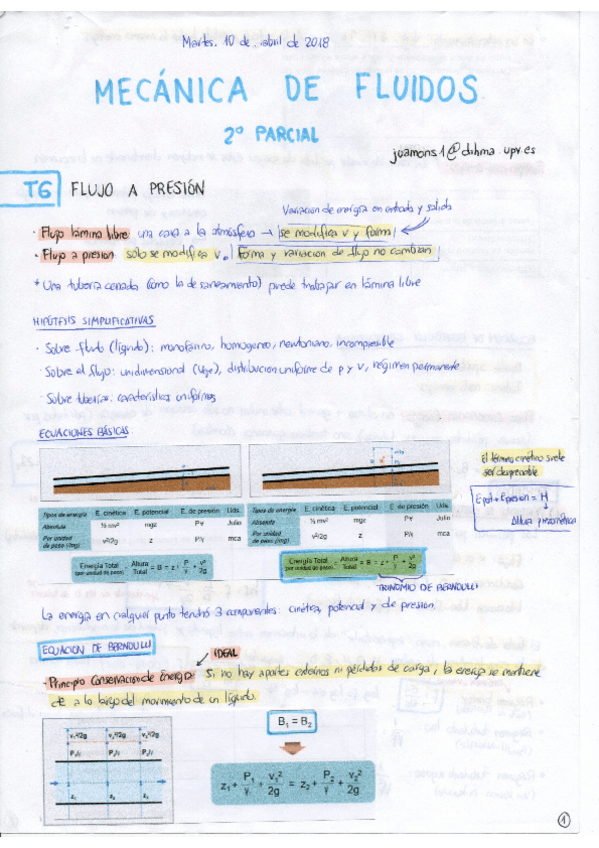 Martes, 10 de abril de 2018
MECÁNICA DE FLUIDOS
2º PARCIAL
juamons1@dihma.upv.es
T6 FLUJO A PRESIÓN
Variación de energía en entrada y salida
· Flujo lámina libre: una cara a la atmósfera → se modifica v y forma
· Flujo a presión: sólo se modifica v. Forma y variación de flujo no cambian
* Una tubería cerrada (como la de saneamiento) puede trabajar en lámina libre
HIPÓTESIS SIMPLIFICATIVAS
· Sobre fluido (líquido): monofásico, homogéneo, newtoniano, incompresible
· Sobre el flujo: unidimensional (1 eje), distribución uniforme de p y v, régimen permanente
· Sobre tuberías: característica uniformes
ECUACIONES BÁSICAS
El término cinético suele
ser despreciable
Epot + Epresión = H
Altura piezométrica
Tipos de energía E. cinética E. potencial E. de presión Uds.
Absoluta ½ mv² mgz P∀ Julio
Por unidad de peso (/mg) v²/2g z P/γ mca
Tipos de energía E. cinética E. potencial E. de presión Uds.
Absoluta ½ mv² mgz P∀ Julio
Por unidad de peso (/mg) v²/2g z P/γ mca
Energía Total (por unidad de peso) = Altura Total = B = z + P/γ + v²/2g
Energía Total (por unidad de peso) = Altura Total = B = z + P/γ + v²/2g
TRINOMIO DE BERNOULLI
La energía en cualquier punto tendrá 3 componentes: cinética, potencial y de presión.
ECUACIÓN DE BERNOULLI
IDEAL
· Principio Conservación de Energía: Si no hay aportes externos ni pérdidas de carga, la energía se mantiene
cte a lo largo del movimiento de un líquido.
B₁ = B₂
v₁²/2g v₂²/2g v₃²/2g
P₁/γ P₂/γ P₃/γ
z₁ z₂ z₃
z₁ + P₁/γ + v₁²/2g = z₂ + P₂/γ + v₂²/2g
1